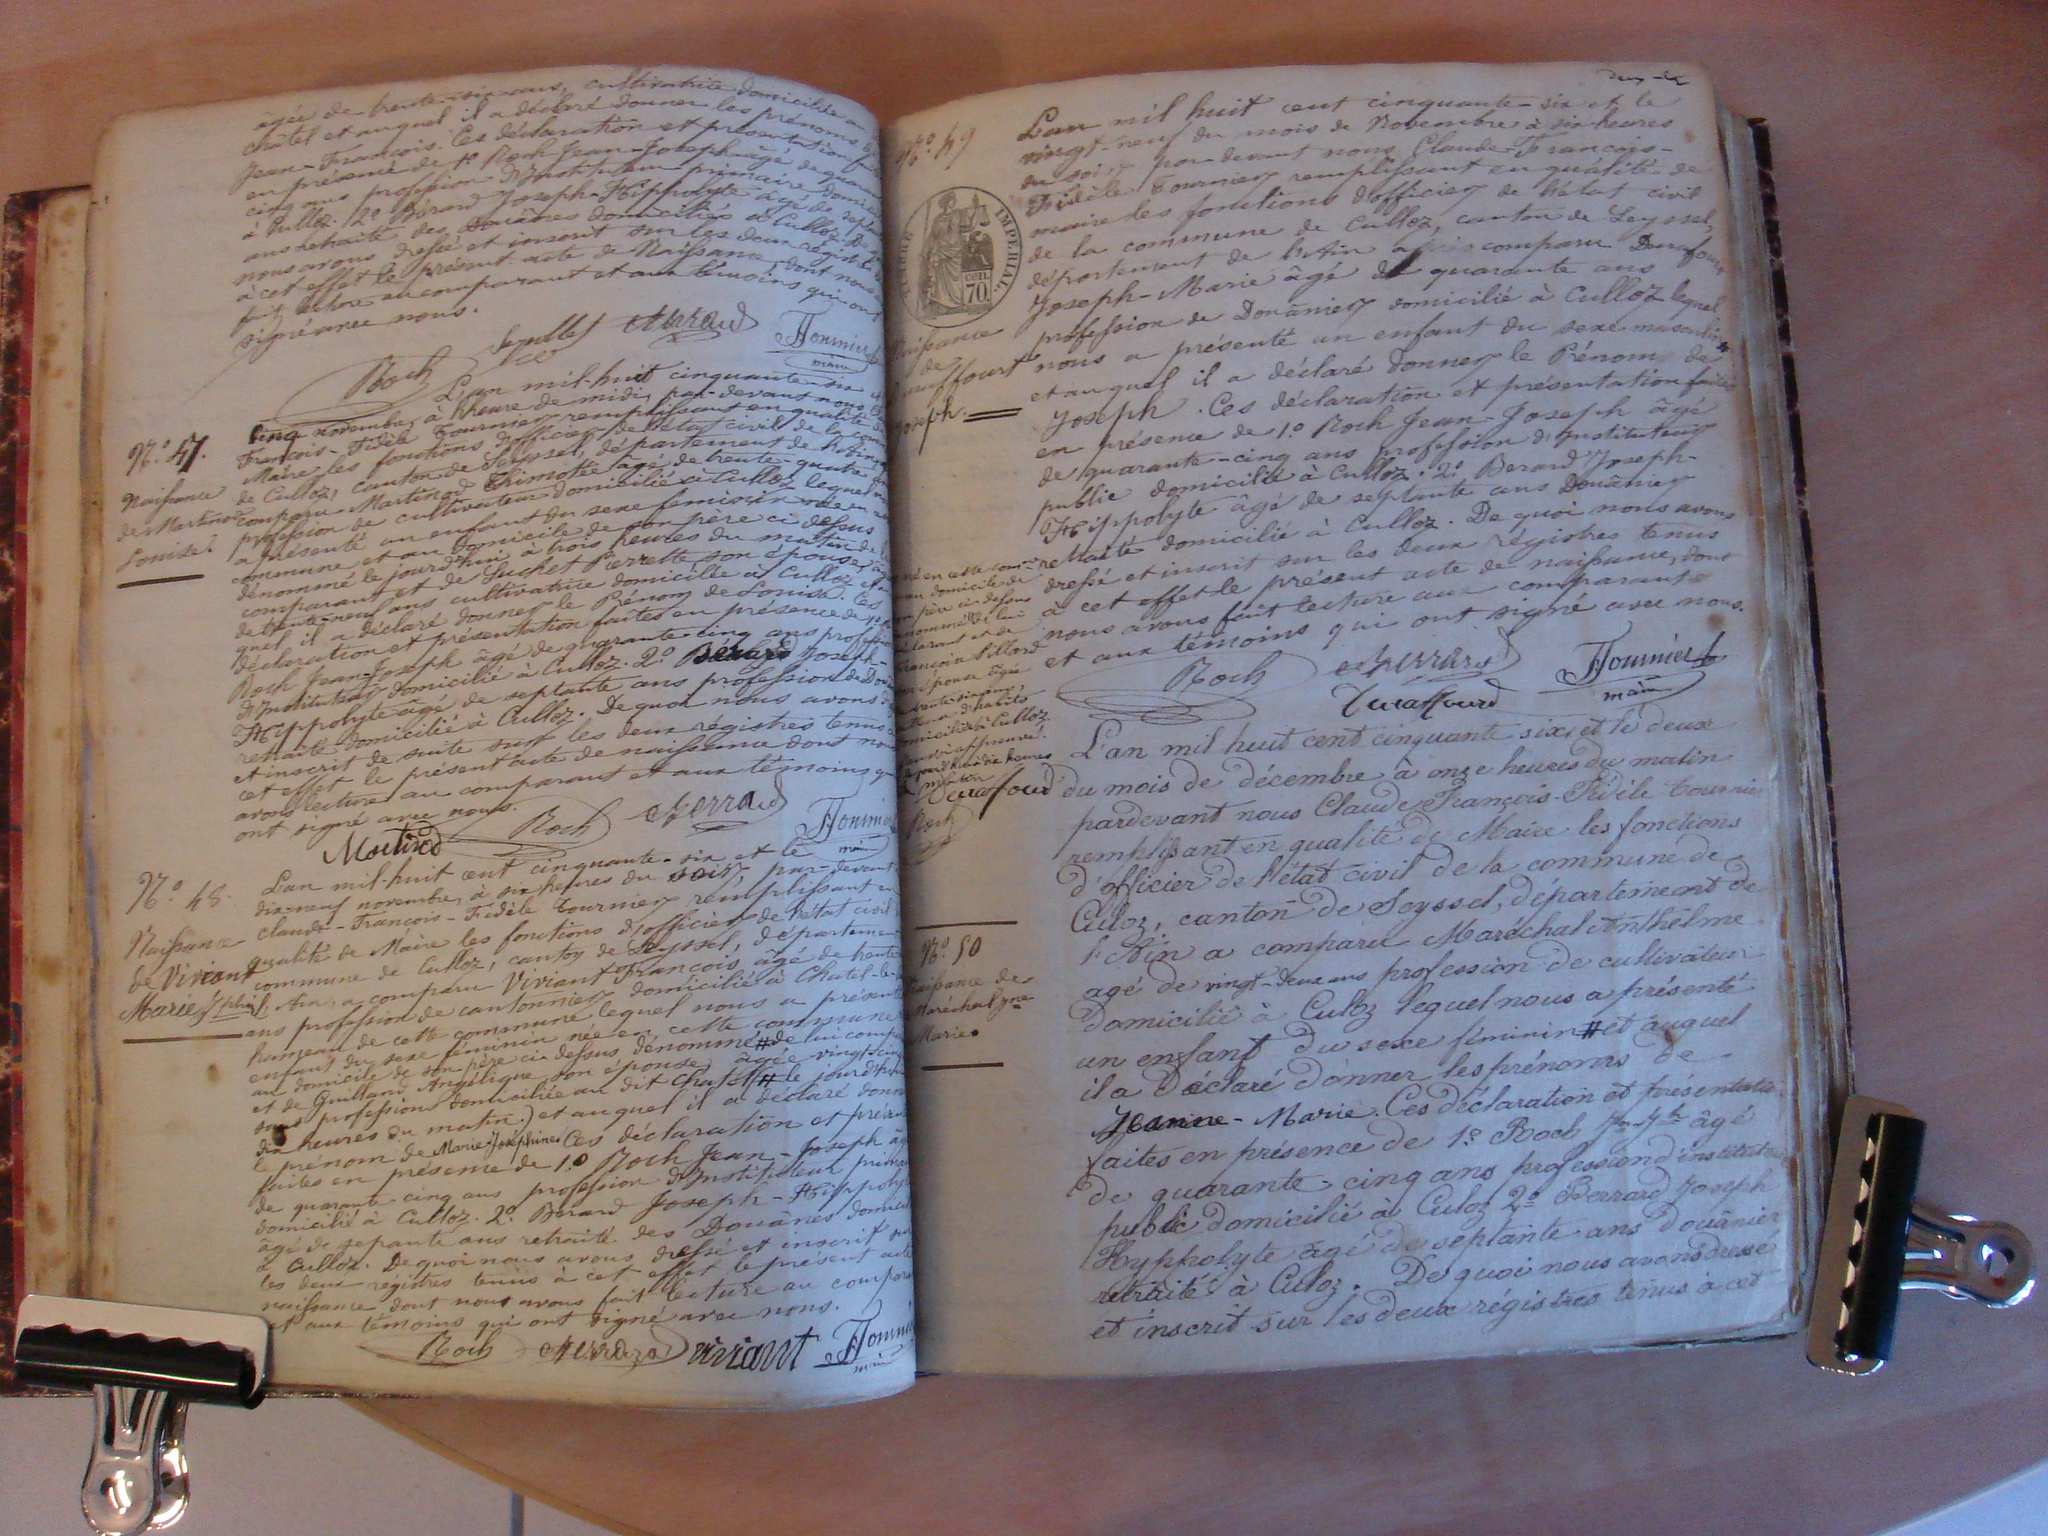 âgée de trente-six ans, cultivatrice domiciliée au
châtel et auquel il a déclaré donner les prénoms de
Jean-François. Ces déclaration et présentation
en présence de 1º Roch Jean-Joseph âgé de quarante
cinq ans profession d'Instituteur primaire
à Culloz. 2º Bérard Joseph-Hippolyte âgé de
ans retraité des Douânes domicilié à Culloz. De
nous avons dressé et inscrit sur les deux régistres
à cet effet le présent acte de Naissance, dont nous
lecture au comparant et aux témoins qui ont
signé avec nous.
Roch
Tournier
maire
Nº 47.
Naissance
de Martinod
Louise
L'an mil-huit cinquante-six et
cinq novembre, à l'heure de midi, par-devant nous
François-Fidèle Tournier remplissant en qualité de
Maire les fonctions d'officier de l'état civil de la
de Culloz, canton de Seyssel, département de l'Ain,
comparu Martinod Thimothé âgé de trente-quatre
profession de cultivateur domicilié à Culloz lequel
a présenté un enfant du sexe féminin née en
commune et au domicile de son père ci dessus
dénommé le jourd'hui à trois heures du matin de
comparant et de Suchet Pierrette son épouse
de trente-neuf ans cultivatrice domiciliée à Culloz et
quel il a déclaré donner le Prénom de Louise. Ces
déclaration et présentation faites en présence de 1º
Roch Jean-Joseph âgé de quarante-cinq ans profession
d'Instituteur domicilié à Culloz. 2º Bérard Joseph-
Hippolyte âgé de septante ans profession de
retraité domicilié à Culloz. De quoi nous avons
et inscrit de suite sur les deux régistres tenus à
cet effet le présent acte de naissance dont nous
avons lecture au comparant et aux témoins qui
ont signé avec nous.
Martinod Roch Tournier
maire
Nº 48.
Naissance
de Viviant
Marie Jphine
L'an mil-huit cent cinquante-six et le
dix-neuf novembre, à six heures du soir, par-devant
claude-François-Fidèle Tournier remplissant en
qualité de Maire les fonctions d'officier de l'état civil
commune de Culloz, canton de Seyssel, département
l'Ain, a comparu Viviant François, âgé de trente
ans profession de cantonnier domicilié à Chatel-le-
hameau de cette commune lequel nous a présenté
enfant du sexe féminin née en cette commune
au domicile de son père ci-dessus dénommé # de lui
et de Guilland Angélique son épouse, âgée vingt-cinq
sans profession domiciliée au dit Chatel # le jourd'hui
dix heures du matin) et auquel il a déclaré donner
le prénom de Marie-Joséphine. Ces déclaration et
faites en présence de 1º Roch Jean-Joseph âgé
de quarante-cinq ans profession d'Instituteur
domicilié à Culloz. 2º Berard Joseph-Hippolyte
âgé de septante ans retraité des Douânes
à Culloz. De quoi nous avons dressé et inscrit sur
les deux régistres tenus à cet effet le présent acte
naissance, dont nous avons fait lecture au
et aux témoins qui ont signé avec nous.
Roch viviant Tournier
maire
Nº 49
TIMBRE IMPERIAL
70 cen
Naissance
de
Joseph.
L'an mil huit cent cinquante-six et le
vingt-neuf du mois de Novembre à six heures
du soir, par-devant nous Claude-François-
Fidèle Tournier remplissant en qualité de
maire les fonctions d'officier de l'état civil
de la commune de Culloz, canton de Seyssel,
département de l'Ain a comparu
Joseph-Marie âgé de quarante ans
profession de Douânier domicilié à Culloz lequel
nous a présenté un enfant du sexe masculin #
et auquel il a déclaré donner le Prénom de
Joseph. Ces déclaration et présentation faites
en présence de 1º Roch Jean-Joseph âgé
de quarante-cinq ans profession d'Instituteur
public domicilié à Culloz. 2º Berard Joseph-
Hippolyte âgé de septante ans Douânier
retraité domicilié à Culloz. De quoi nous avons
dressé et inscrit sur les deux régistres tenus
à cet effet le présent acte de naissance, dont
nous avons fait lecture aux comparants
et aux témoins qui ont signé avec nous.
né en cette
au domicile de
père ci-dessus
domiciliée à Culloz
Roch
Roch Tournier
maire
Nº 50
Naissance de
Maréchal Jne
Marie.
L'an mil huit cent cinquante six et le deux
du mois de décembre à onze heures du matin
pardevant nous Claude-François-Fidèle Tournier
remplissant en qualité de Maire les fonctions
d'officier de l'état civil de la commune de
Culoz, canton de Seyssel, département de
l'Ain a comparu Maréchal Anthelme
agé de vingt-deux ans profession de cultivateur
domicilié à Culoz lequel nous a présenté
un enfant du sexe féminin # et auquel
il a déclaré donner les prénoms de
Jeanne-Marie. Ces déclaration et présentation
faites en présence de 1º Roch Jn-Jph âgé
de quarante-cinq ans profession d'instituteur
public domicilié à Culoz 2º Berrard Joseph
Hyppolyte âgé de septante ans douânier
retraité à Culoz. De quoi nous avons dressé
et inscrit sur les deux régistres tenus à cet